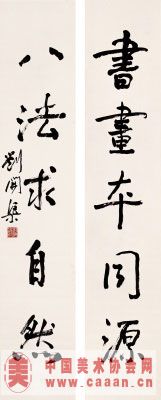 書畫本同源
八法求自然
劉開渠
中国美术协会网
www.caaan.cn